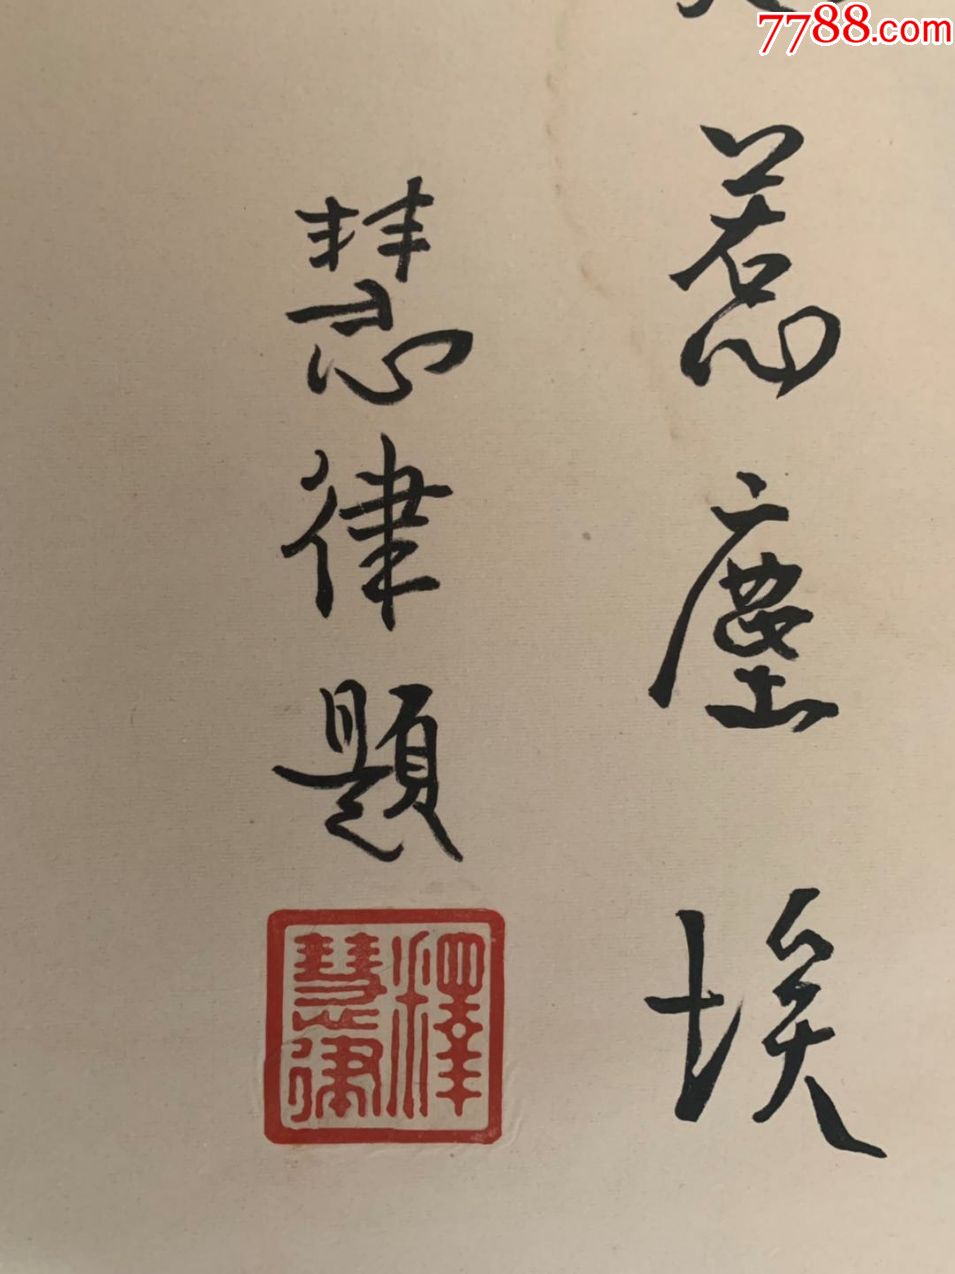 7788.com
惹塵埃
慧律題
釋慧律